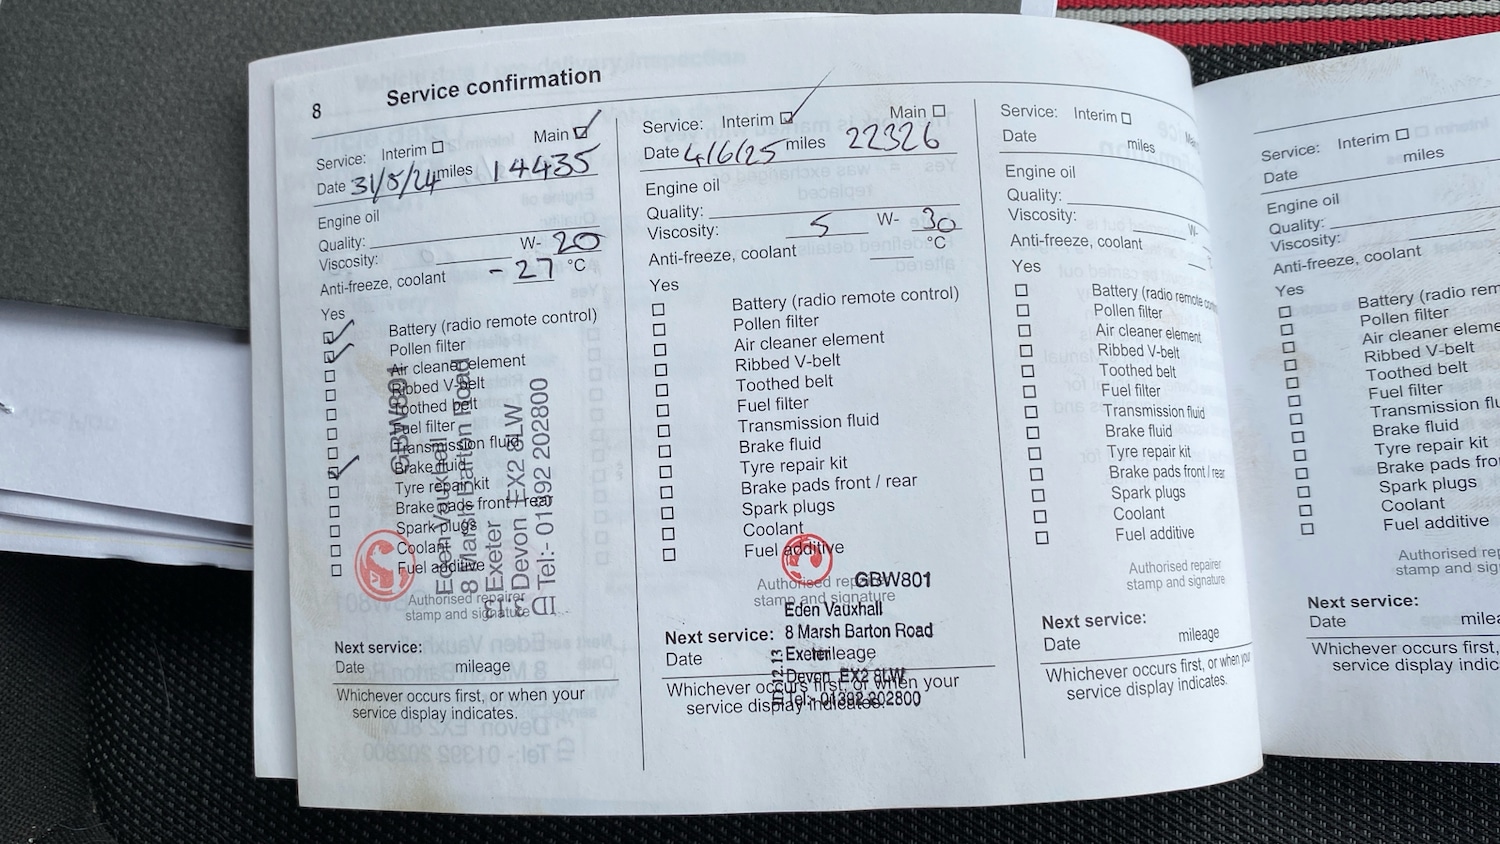 8
Service confirmation
Service: Interim ☐ Main ☑
Date 31/5/24 miles 14435
Engine oil
Quality:
Viscosity: W- 20
Anti-freeze, coolant -27 °C
Yes
☑ Battery (radio remote control)
☑ Pollen filter
☐ Air cleaner element
☐ Ribbed V-belt
☐ Toothed belt
☐ Fuel filter
☐ Transmission fluid
☑ Brake fluid
☐ Tyre repair kit
☐ Brake pads front / rear
☐ Spark plugs
☐ Coolant
☐ Fuel additive
Authorised repairer
stamp and signature
GBW801
Eden Vauxhall
8 Marsh Barton Road
Exeter
Devon EX2 8LW
Tel:- 01392 202800
ID 3.13
Next service:
Date mileage
Whichever occurs first, or when your
service display indicates.
Service: Interim ☑ Main ☐
Date 4/6/25 miles 22326
Engine oil
Quality:
Viscosity: 5 W- 30
Anti-freeze, coolant °C
Yes
☐ Battery (radio remote control)
☐ Pollen filter
☐ Air cleaner element
☐ Ribbed V-belt
☐ Toothed belt
☐ Fuel filter
☐ Transmission fluid
☐ Brake fluid
☐ Tyre repair kit
☐ Brake pads front / rear
☐ Spark plugs
☐ Coolant
☐ Fuel additive
Authorised repairer
stamp and signature
GBW801
Eden Vauxhall
8 Marsh Barton Road
Exeter
Devon EX2 8LW
Tel:- 01392 202800
Next service:
Date mileage
Whichever occurs first, or when your
service display indicates.
Service: Interim ☐
Date miles
Engine oil
Quality:
Viscosity: W-
Anti-freeze, coolant
Yes
☐ Battery (radio remote
☐ Pollen filter
☐ Air cleaner element
☐ Ribbed V-belt
☐ Toothed belt
☐ Fuel filter
☐ Transmission fluid
☐ Brake fluid
☐ Tyre repair kit
☐ Brake pads front / rear
☐ Spark plugs
☐ Coolant
☐ Fuel additive
Authorised repairer
stamp and signature
Next service:
Date mileage
Whichever occurs first, or when your
service display indicates.
Service: Interim ☐
Date miles
Engine oil
Quality:
Viscosity:
Anti-freeze, coolant
Yes
☐ Battery (radio rem
☐ Pollen filter
☐ Air cleaner eleme
☐ Ribbed V-belt
☐ Toothed belt
☐ Fuel filter
☐ Transmission flu
☐ Brake fluid
☐ Tyre repair kit
☐ Brake pads fro
☐ Spark plugs
☐ Coolant
☐ Fuel additive
Authorised rep
stamp and sig
Next service:
Date milea
Whichever occurs first,
service display indic